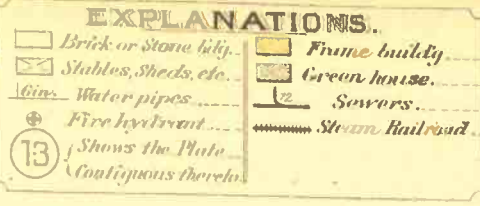 EXPLANATIONS.
Brick or Stone bldg.
Stables, Sheds, etc.
6in. Water pipes
Fire hydrant
13 Shows the Plate
Contiguous thereto
Frame buildg
Green house.
12 Sewers.
Steam Railroad